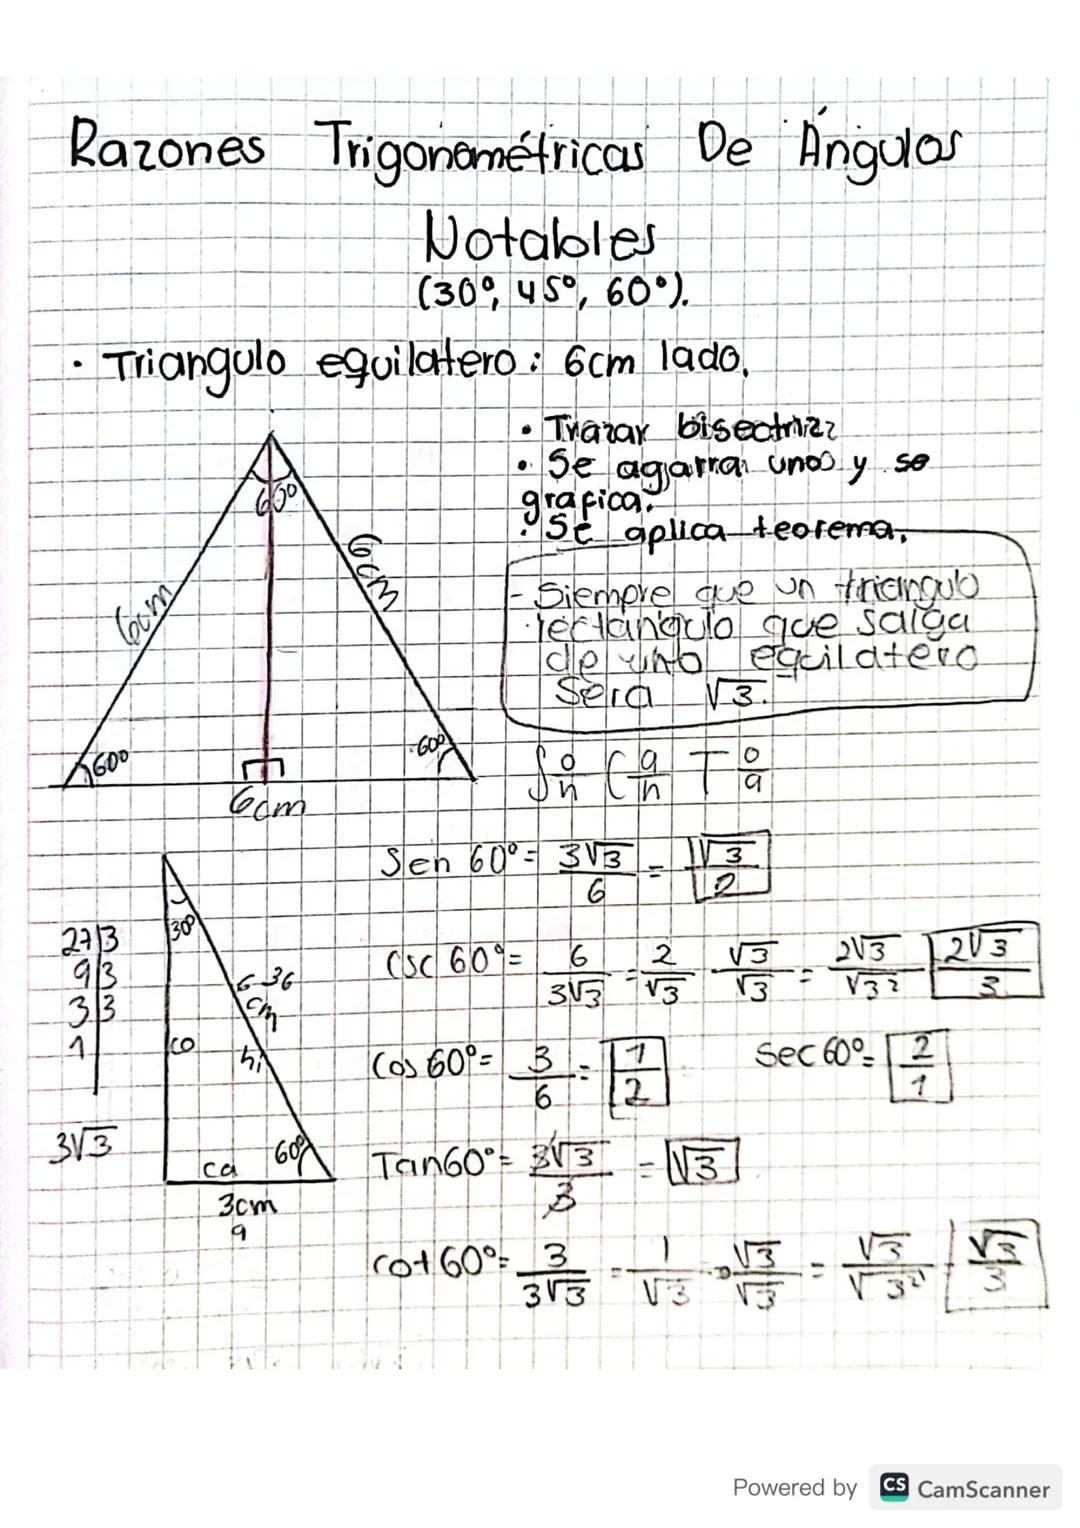 Razones Trigonométricas De Ángulos
Notables
(30°, 45°, 60°).
· Triangulo equilatero: 6cm lado.
• Trazar bisectriz
• Se agarra unos y se
grafica.
• Se aplica teorema.
- Siempre que un triangulo
rectangulo que salga
de uno equilatero
Sera √3.
60°
6cm
6cm
60°
60°
6cm
S o/h C a/h T o/a
Sen 60° = 3√3/6 = √3/2
27|3
9|3
3|3
1|
3√3
30°
6-36
cm
co
hi
60°
ca
3cm
9
Csc 60° = 6/3√3 = 2/√3 · √3/√3 = 2√3/√3² 2√3/3
Cos 60° = 3/6 = 1/2 Sec 60° = 2/1
Tan60° = 3√3/3 = √3
cot 60° = 3/3√3 = 1/√3 · √3/√3 = √3/√3² = √3/3
Powered by CS CamScanner